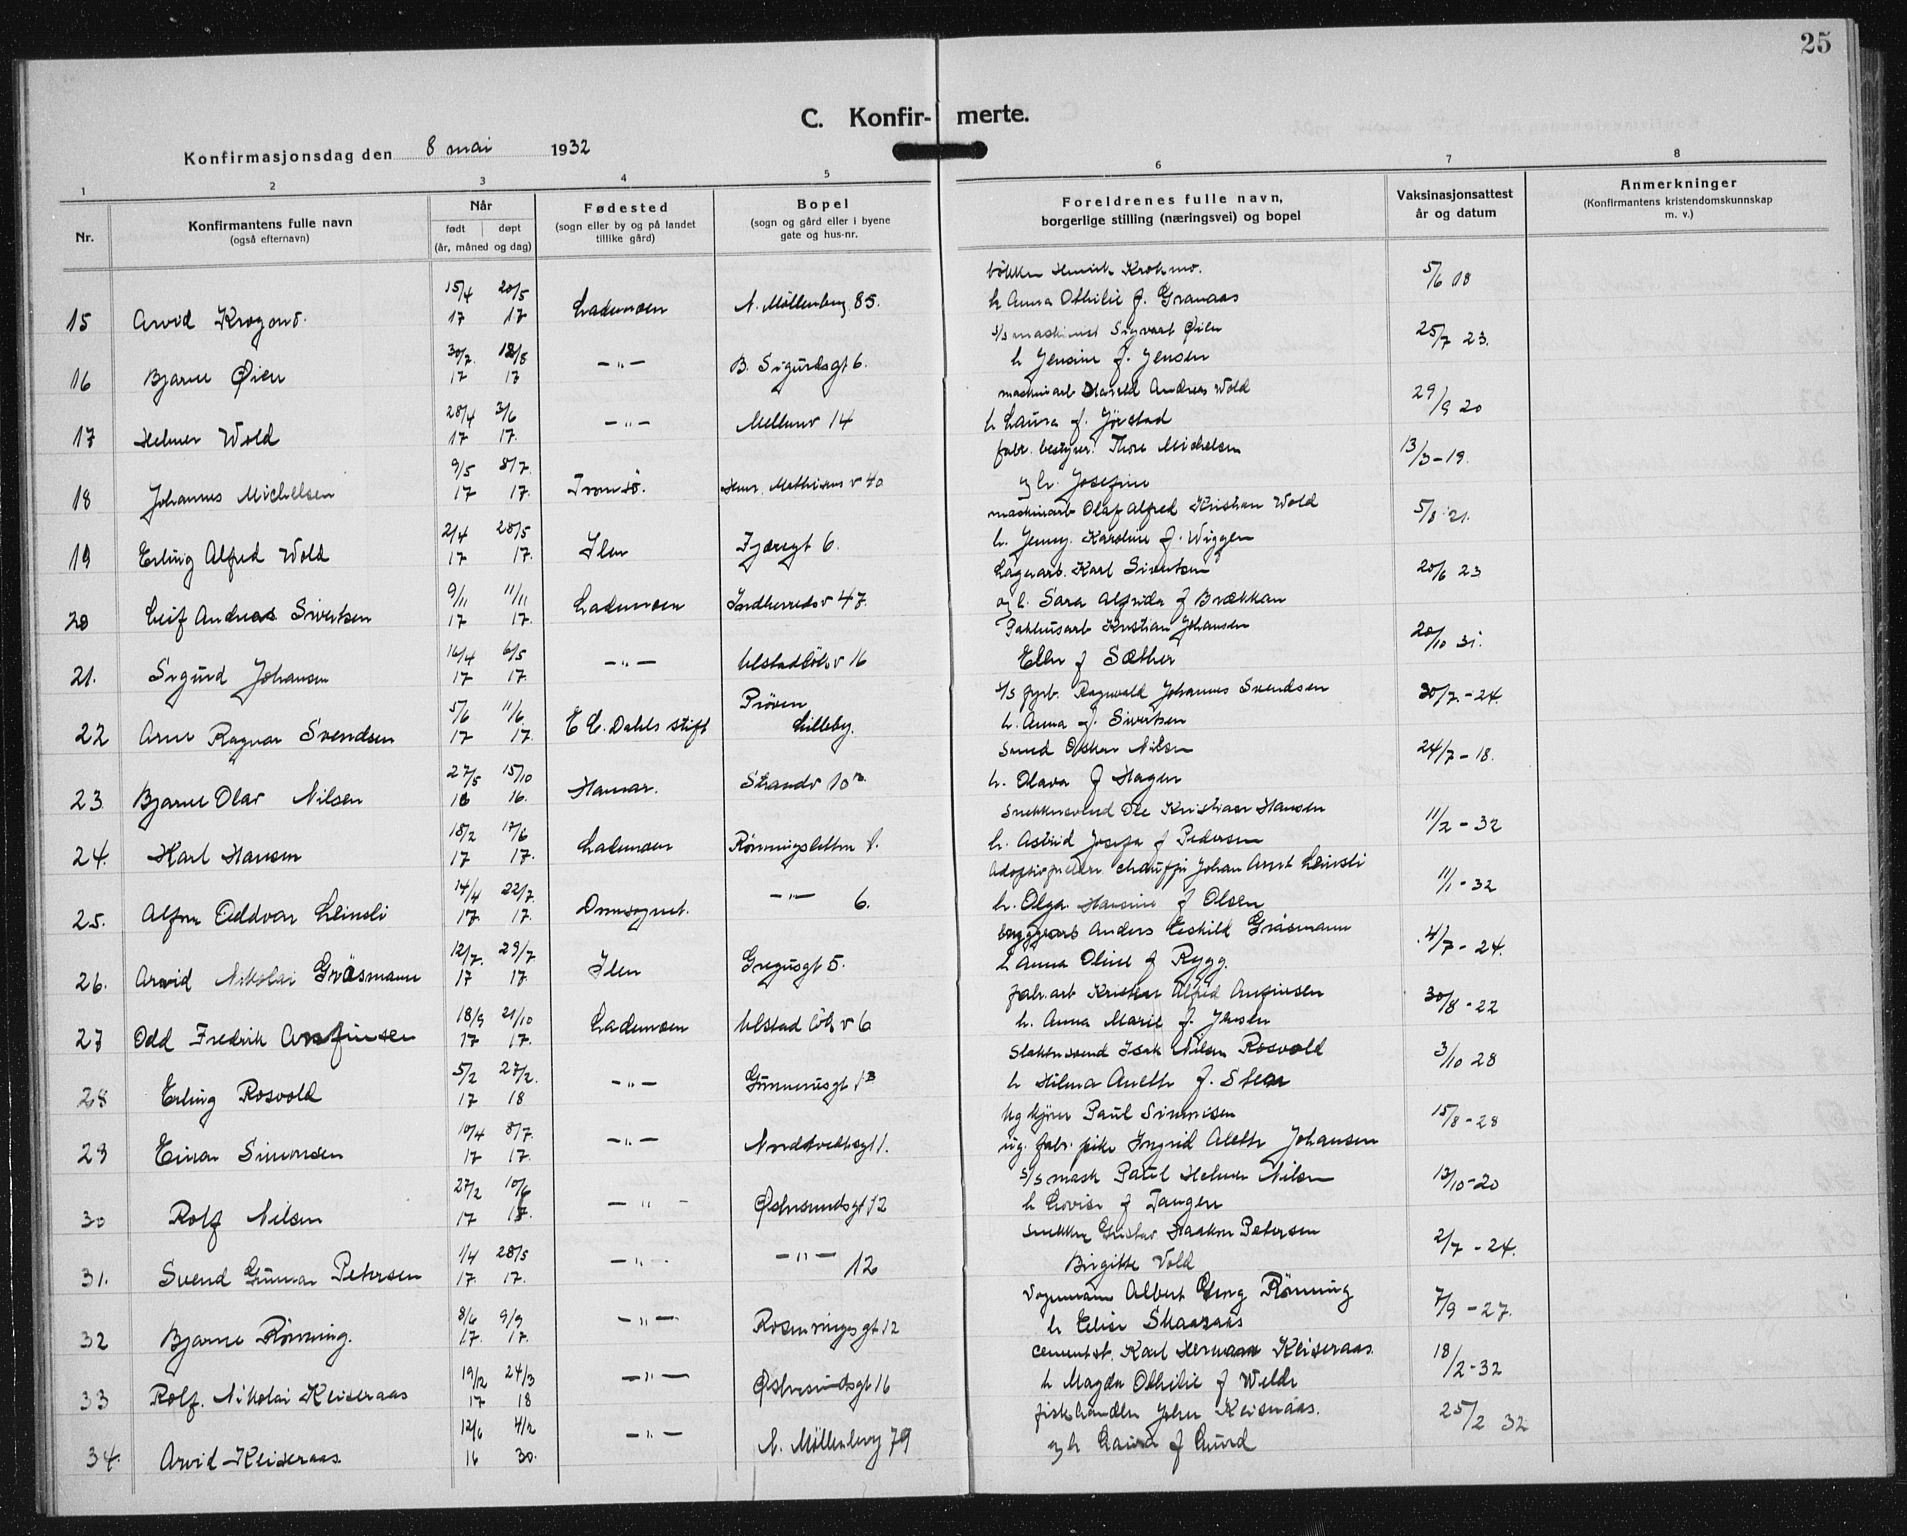 25
C. Konfir- merte.
Konfirmasjonsdag den 8 mai 1932
1 2 3 4 5 6 7 8
Nr.
Konfirmantens fulle navn
(også efternavn)
Når
født døpt
(år, måned og dag)
Fødested
(sogn eller by og på landet
tillike gård)
Bopel
(sogn og gård eller i byene
gate og hus-nr.
Foreldrenes fulle navn,
borgerlige stilling (næringsvei) og bopel
Vaksinasjonsattest
år og datum
Anmerkninger
(Konfirmantens kristendomskunnskap
m. v.)
15/4 20/5 Henrik 5/6 08
15 Arvid 17 17 Lademoen N. Møllenberg 85. h Anna Othilie f. Granaas
30/7. 18/8 s/s maskinist Sigvart Øien 25/7 23.
16 Bjarne Øien 17 17 —"— B. Sigurdsgt 6. h. Jensine f. Jensen
28/4 3/6 maskinarb Harald Andreas Wold 29/9 20
17 Helmer Wold 17 17. —"— Mellemv 14 h Laura f. Jørstad
9/5 8/7. fabr. bestyrer Thore Michelsen 13/3-19.
18 Johannes Michelsen 17 17. Tromsö. Henr. Mathisens v 40 og h. Josefine
21/4 28/5 maskinarb Olaf Alfred Kristian Wold 5/8 21.
19 Erling Alfred Wold 17 17. Ilen Fjæregt 6. h. Jenny Karoline f. Wiggen
9/11 11/11 Lagerarb. Karl Sivertsen 20/6 23
20 Leif Andreas Sivertsen 17 17. Lademoen Indherredsv 47. og h. Sara Alfrida f Brækkan
16/4 6/5 Pakhusarb Kristian Johansen 20/10 31.
21. Sigurd Johansen 17 17. —"— Ulstadløkv 16 Ellen f Sæther
5/6 11/6 Prøven s/s fyrb. Ragnvald Johannes Svendsen 30/7.-24.
22 Arne Ragnar Svendsen 17 17. E C. Dahls stift Lilleby. h. Anna f. Sivertsen
27/5 15/10 Smed Oskar Nilsen 24/7-18.
23 Bjarne Olav Nilsen 16 16. Hamar. Strandv 10 h. Olava f Hagen
18/2 17/6 Snekkersvend Ole Kristian Hansen 11/2-32
24. Karl Hansen 17 17. Lademoen h. Astrid Josefa f Pedersen
14/4 22/7. Johan Arnt Leinsli 11/1-32
25. Oddvar Leinsli 17 17. Domsognet. —"— 6. h. Olga Hansine f Olsen
12/7. 29/7 bryggearb Anders Eskild Gräsmann 4/7-24.
26. Arvid Nikolai Gräsmann 17 17. Ilen Gregusgt 5. h Anna Oline f Rygg.
18/9 21/10 fabr.arb Kristian Alfred Anfinsen 30/8-22
27 Odd Fredrik Anfinsen 17 17. Lademoen Ulstad løk v 6 h. Anna Marie f. Jensen
5/2 27/2. Slaktersvend Isak Nilsen Rosvold 3/10 28
28 Erling Rosvold 17 18 —"— Gunnerusgt 1B h Hilma Anette f.
10/4 8/7. Paul Simonsen 15/8-28
29 Einar Simonsen 17 17. —"— ug. fabr. pike Ingrid Alette Johansen
27/2 10/6 s/s mask Paul Helmer Nilsen 12/10-20
30 Rolf Nilsen 17 17. —"— Østersundsgt 12 h Lovise f Tangen
1/4 28/5 Snekker Gustav Haakon Petersen 2/7-24.
31. Svend Gunnar Petersen 17. 17. —"— —"— 12 Birgitte Vold
8/6 9/9 Vognmann Albert Georg Rönning 7/9-27.
32 Bjarne Rönning. 17. 17. —"— Rosenborgsgt 12 h Elise Skaaraas
19/12 24/3 cementst. Karl Herman Keiseraas. 18/2-32
33 Rolf. Nikolai Keiseraas 17 18 —"— Østersundsgt 16 h Magda Othilie f Welde
12/6 4/2 fiskehandler John Keiseraas. 25/2 32
34. Arvid Keiseraas 16 30. —"— N. Møllenberg 79 og h Laura f Aund